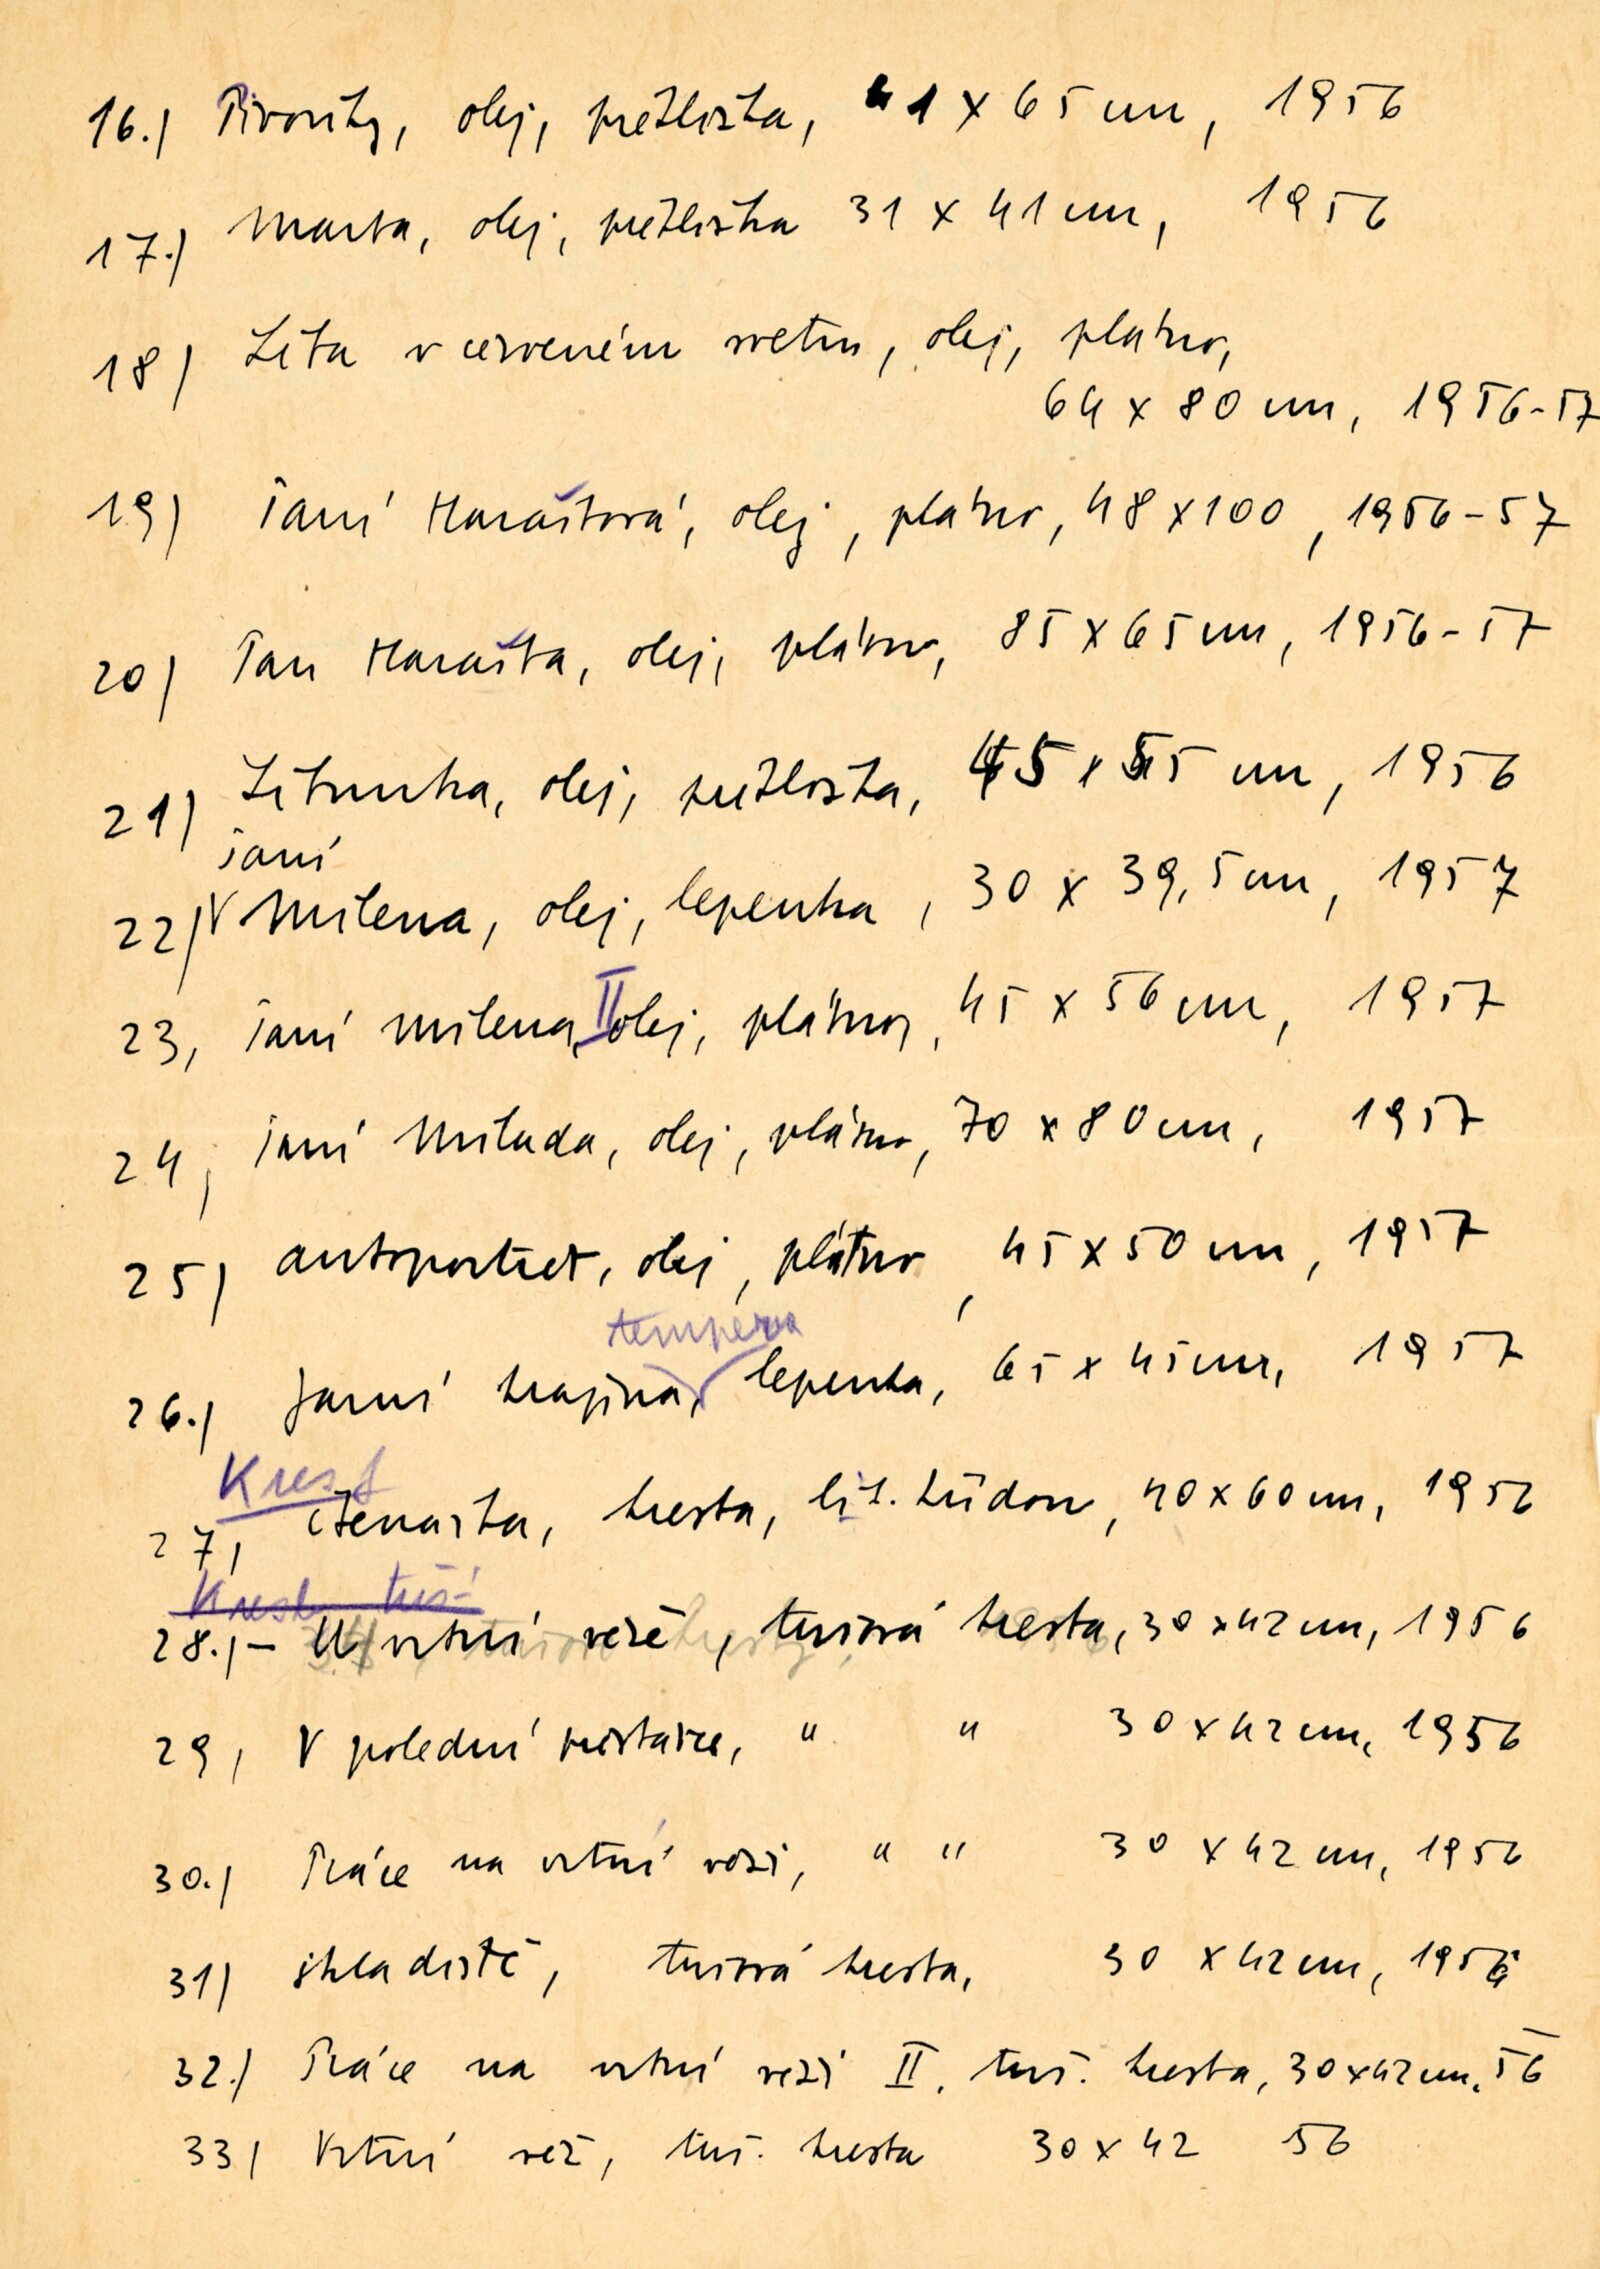 16.) Pivoňky, olej, překližka, 41 x 65 cm, 1956
17.) Marta, olej, překližka 31 x 41 cm, 1956
18) Líťa v červeném svetru, olej, plátno,
64 x 80 cm, 1956-57
19) Paní Haraštová, olej, plátno, 48 x 100, 1956-57
20) Pan Harašta, olej, plátno, 85 x 65 cm, 1956-57
21) olej, překližka, 45 x 55 cm, 1956
paní
22) Milena, olej, lepenka, 30 x 39,5 cm, 1957
23, paní Milena, II olej, plátno, 45 x 56 cm, 1957
24, paní Milada, olej, plátno, 70 x 80 cm, 1957
25) autoportret, olej, plátno, 45 x 50 cm, 1957
tempera
26.) Jarní krajina, lepenka, 65 x 45 cm, 1957
Kresb
27, čtenářka, kresba, lit. křídou, 40 x 60 cm, 1956
Kresb tuš
28.) - U vrtní věže, tušová kresba, 30 x 42 cm, 1956
29, V polední přestávce, " " 30 x 42 cm, 1956
30.) Práce na vrtní věži, " " 30 x 42 cm, 1956
31) skladiště, tušová kresba, 30 x 42 cm, 1956
32.) Práce na vrtní věži II. tuš. kresba, 30x42 cm, 56
33) Vrtní věž, tuš. kresba 30 x 42 56